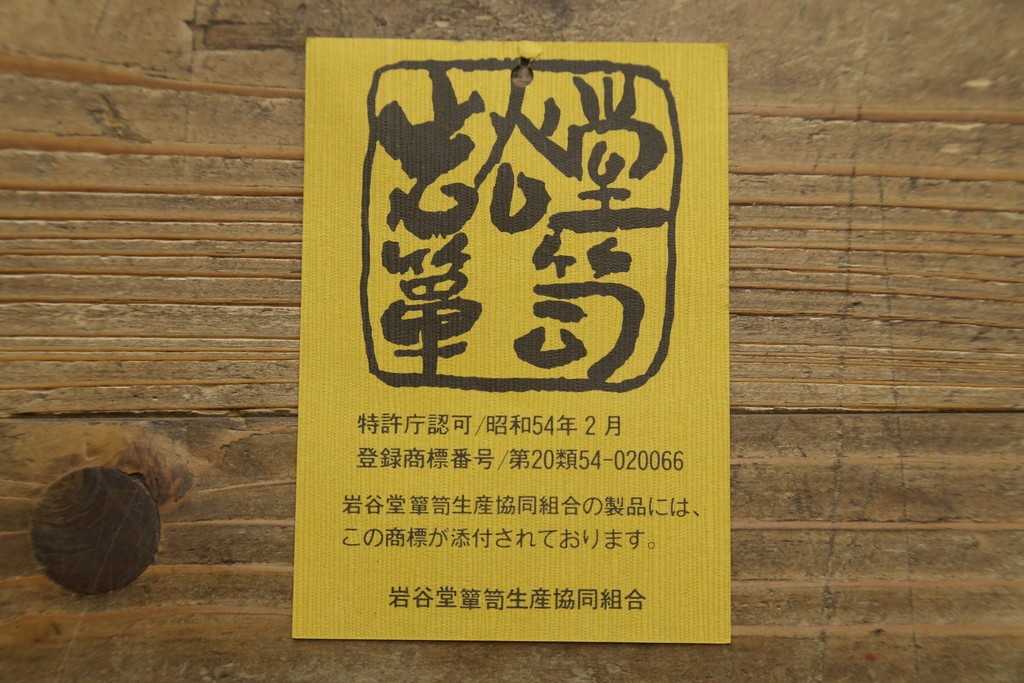 岩谷堂
簞笥
特許庁認可/昭和54年2月
登録商標番号/第20類54-020066
岩谷堂簞笥生産協同組合の製品には、
この商標が添付されております。
岩谷堂簞笥生産協同組合